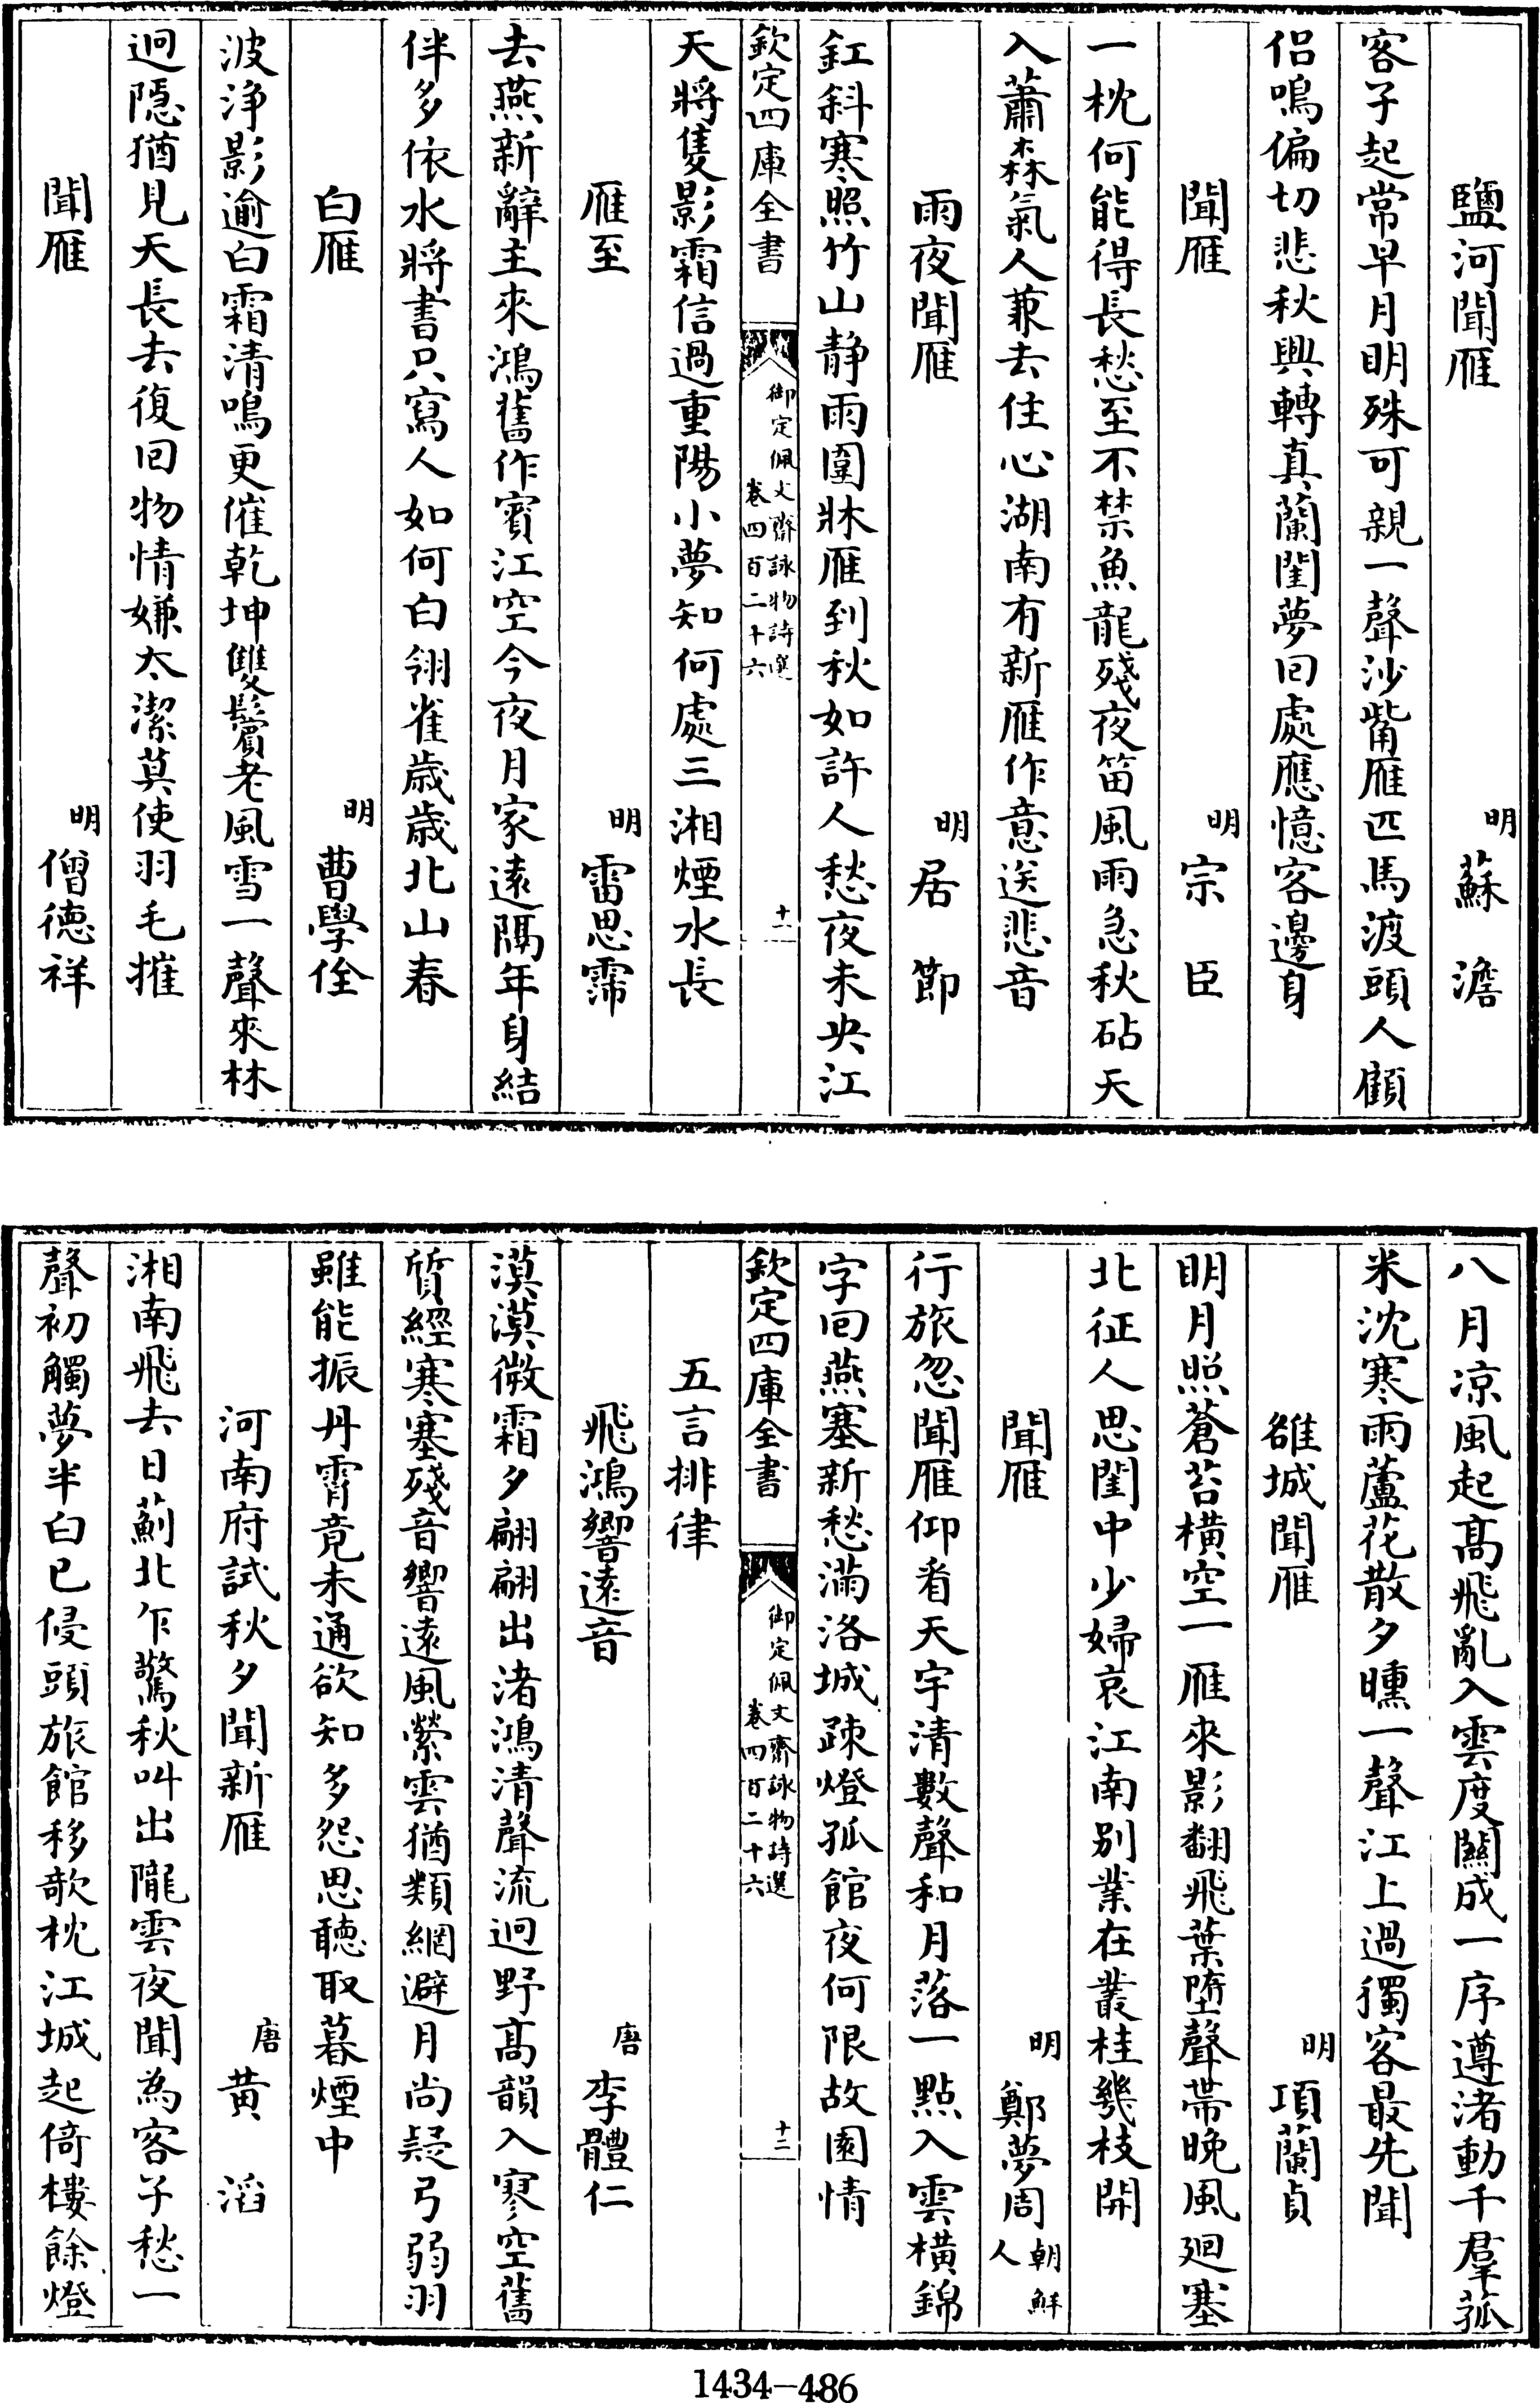 鹽河聞雁　明　蘇　澹
客子起常早月明殊可親一聲沙觜雁匹馬渡頭人顧
侣鳴偏切悲秋興轉真蘭閨夢回處應憶客邊身
聞雁　明　宗　臣
一枕何能得長愁至不禁魚龍殘夜笛風雨急秋砧天
入蕭森氣人兼去住心湖南有新雁作意送悲音
雨夜聞雁　明　居　節
釭斜寒照竹山静雨圍牀雁到秋如許人愁夜未央江
欽定四庫全書　御定佩文齋詠物詩選　卷四百二十六　十一
天將隻影霜信過重陽小夢知何處三湘煙水長
雁至　明　雷思霈
去燕新辭主來鴻舊作賓江空今夜月家遠隔年身結
伴多依水將書只寫人如何白翎雀歳歳北山春
白雁　明　曹學佺
波浄影逾白霜清鳴更催乾坤雙鬢老風雪一聲來林
迥隠猶見天長去復回物情嫌太潔莫使羽毛摧
聞雁　明　僧德祥
八月凉風起髙飛亂入雲度關成一序遵渚動千羣菰
米沈寒雨蘆花散夕曛一聲江上過獨客最先聞
雒城聞雁　明　項蘭貞
明月照蒼苔橫空一雁來影翻飛葉墮聲帶晚風廻塞
北征人思閨中少婦哀江南别業在叢桂幾枝開
聞雁　明　鄭夢周　朝鮮人
行旅忽聞雁仰看天宇清數聲和月落一點入雲橫錦
字回燕塞新愁滿洛城疎燈孤館夜何限故園情
欽定四庫全書　御定佩文齋詠物詩選　卷四百二十六　十二
五言排律
飛鴻響遠音　唐　李體仁
漠漠微霜夕翩翩出渚鴻清聲流迥野髙韻入寥空舊
質經寒塞殘音響遠風縈雲猶類網避月尚疑弓弱羽
雖能振丹霄竟未通欲知多怨思聽取暮煙中
河南府試秋夕聞新雁　唐　黄　滔
湘南飛去日薊北乍驚秋叫出隴雲夜聞為客子愁一
聲初觸夢半白已侵頭旅館移欹枕江城起倚樓餘燈
1434-486